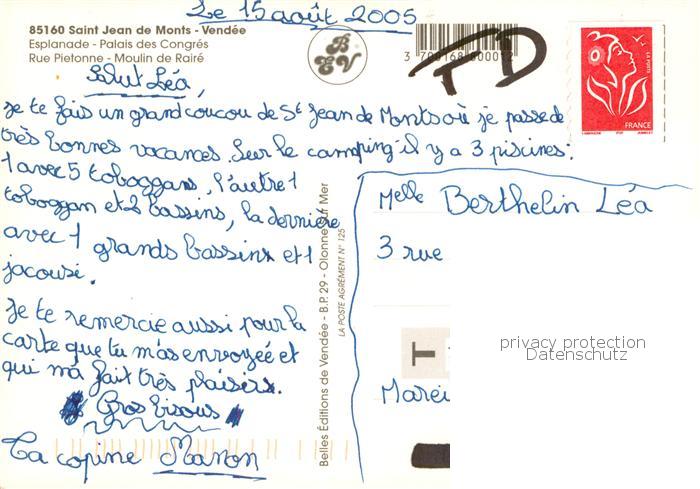 Le 15 août 2005
85160 Saint Jean de Monts - Vendée
Esplanade - Palais des Congrés
Rue Pietonne - Moulin de Rairé
BEV
TD
LA POSTE
FRANCE
Salut Léa,
Je te fais un grand coucou de St Jean de Monts où je passe de
très bonnes vacances. Sur le camping il y a 3 piscines :
1 avec 5 toboggans, l'autre 1
toboggan et 2 bassins, la dernière
avec 1 grands bassins et 1
jacousi.
Je te remercie aussi pour la
carte que tu m'as envoyée et
qui m'a fait très plaisirs.
Gros bisous
Ta copine Manon
Belles Editions de Vendée - B.P. 29 - Olonne sur Mer
LA POSTE AGRÉMENT N° 125
Melle Berthelin Léa
3 rue
T
Marei
privacy protection
Datenschutz